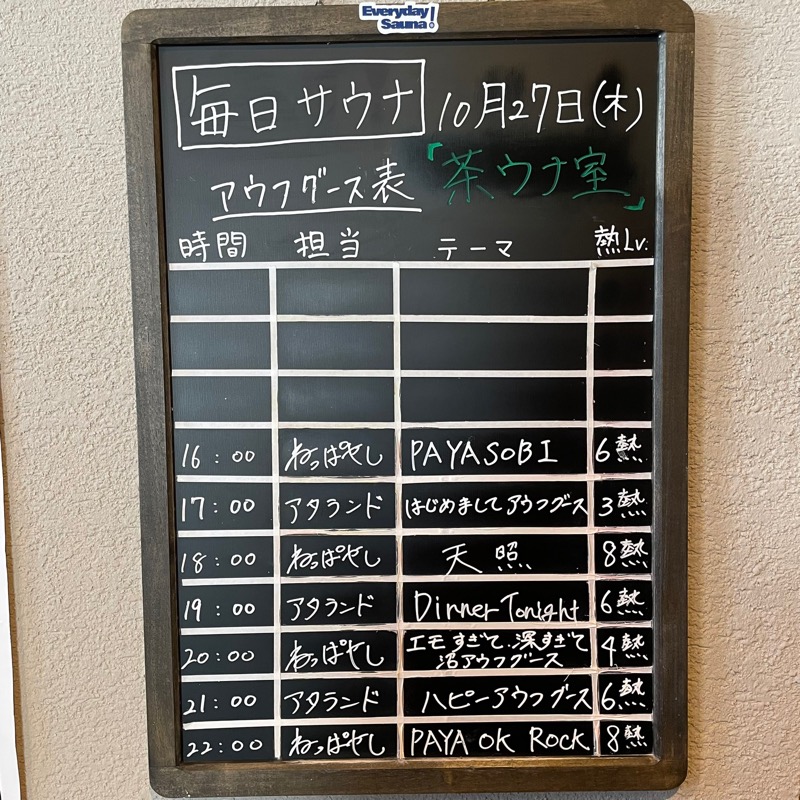 Everyday
Sauna!
毎日サウナ 10月27日(木)
アウフグース表 「茶ウナ室」
時間 担当 テーマ 熱Lv.
16:00 ねっぱやし PAYASOBI 6熱
17:00 アタランド はじめましてアウフグース 3熱
18:00 ねっぱやし 天照 8熱
19:00 アタランド Dinner Tonight 6熱
20:00 ねっぱやし エモすぎて、深すぎて 4熱
沼アウフグース
21:00 アタランド ハピーアウフグース 6熱
22:00 ねっぱやし PAYA OK ROCK 8熱